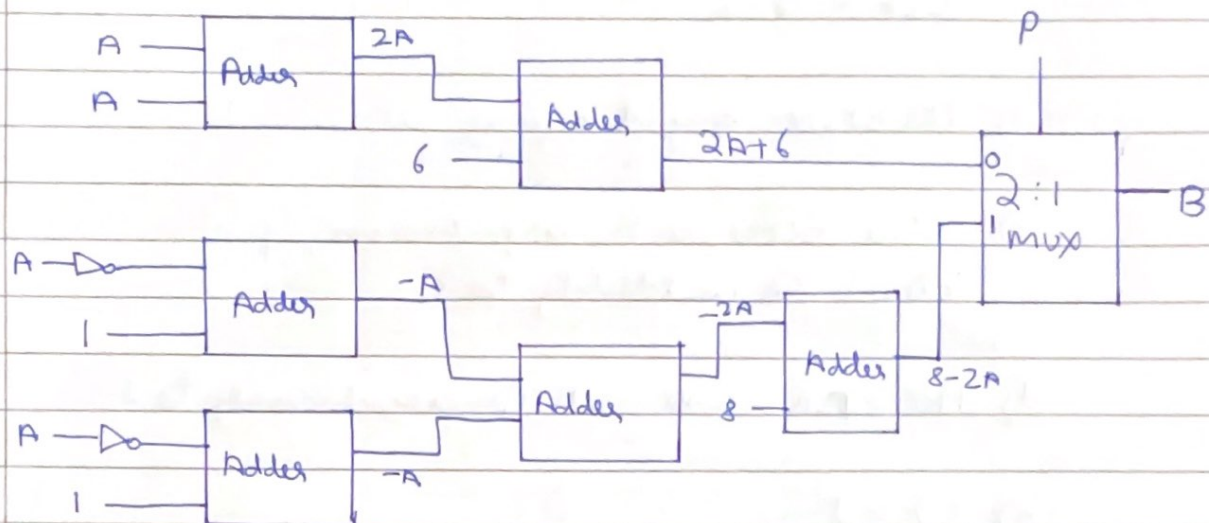 P
A
A
Adder
2A
6
Adder
2A+6
0
2:1
1
MUX
B
A
1
Adder
-A
A
1
Adder
-A
Adder
-2A
8
Adder
8-2A